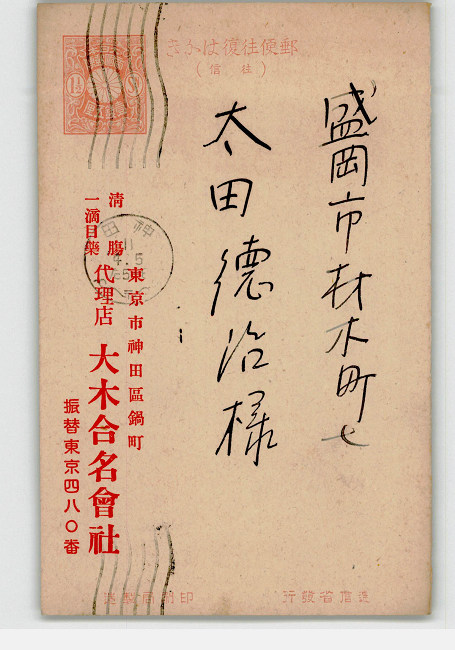 郵便往復はかき
(往信)
1½
盛岡市材木町七
太田德治様
神田
11
4.5
清腸
一滴目藥
代理店
東京市神田區鍋町
大木合名會社
振替東京四八〇番
遞信省發行
印刷局製造